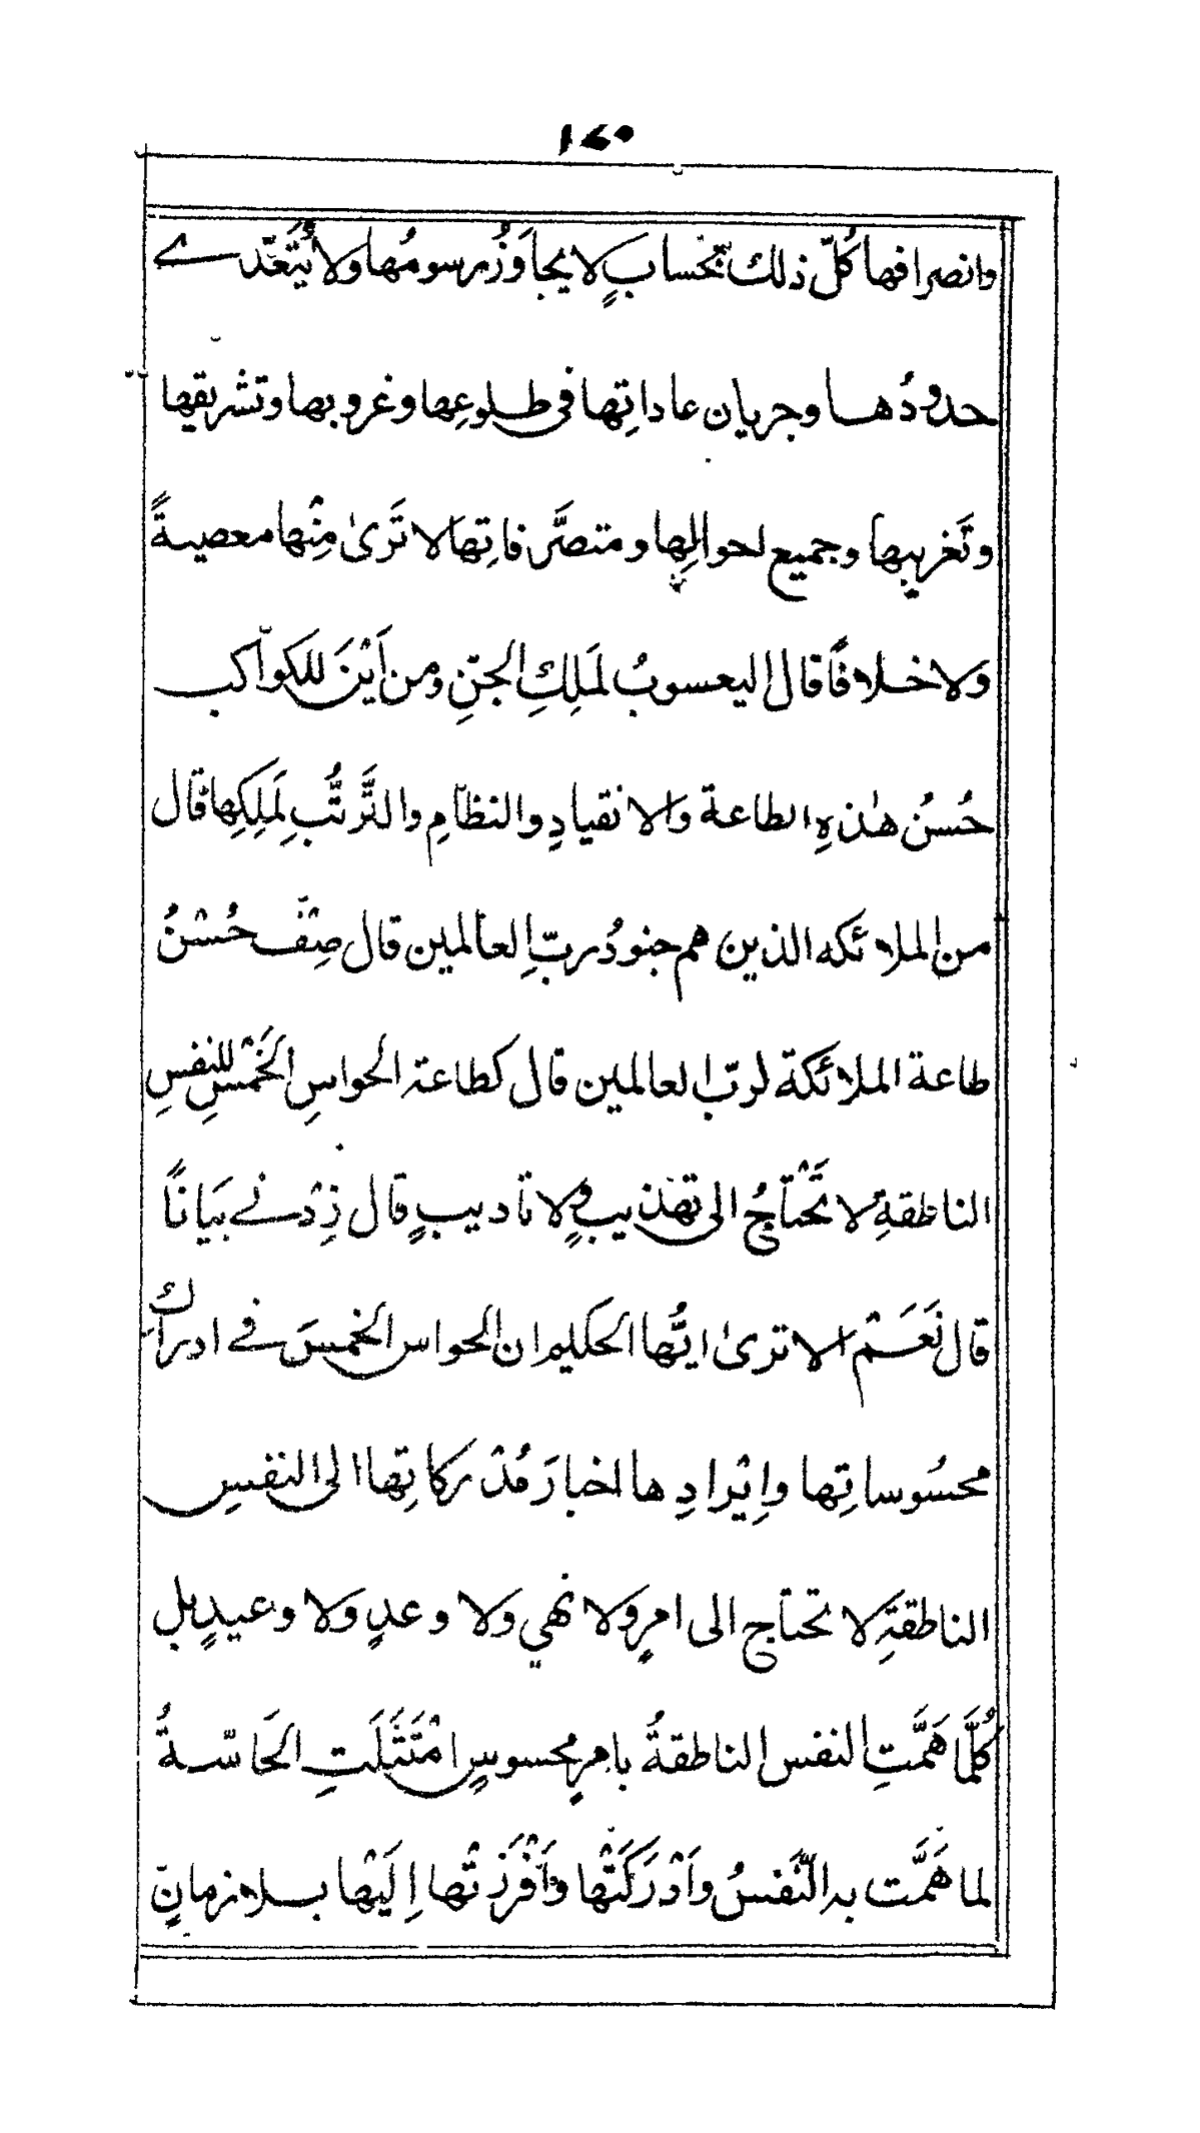 ١٤٥
وانصرافها كُلّ ذلك بحسابٍ لا يجاوَزُ رسومُها ولا يُتَعَدّے
حدودُها وجريان عاداتِها فى طلوعِها وغروبها وتشريقها
وتَغريبها وجميع احوالِها ومتصَرَّفاتِها لا تَرىٰ مِنْها معصيةً
ولا خلافًا قال اليعسوبُ لمَلِكِ الجنّ ومن اَيْنَ للكواكب
حُسنُ هٰذهِ الطاعة والانقيادِ والنظامِ والتَّرتُّبِ لِمَلِكِها قال
من الملائكه الذين هم جنودُ ربّ العالمين قال صِفْ حُسْنُ
طاعة الملائكة لربّ العالمين قال كطاعة الحواسِ الخَمْسِ للنفسِ
الناطقةِ لا تَحْتاجُ الى تهذيبٍ ولا تاديبٍ قال زِدْنے بَيانًا
قال نَعَمْ الا ترىٰ ايُّها الحكليم ان الحواس الخمسَ فے ادراك
محسُوساتِها وايْرادِها اخبارَ مُدْركاتِها الى النفسِ
الناطقةِ لا تحتاج الى امرٍ ولا نهي ولا وعدٍ ولا وعيدٍ بل
كُلَّما هَمَّتِ النفس الناطقةُ بامرٍ محسوسٍ امْتَثَلَتِ الحَاسّةُ
لما هَمَّت به النَّفسُ واَدْرَكَتْها واَفْرَزَتْها اِلَيْها بلا زمانٍ